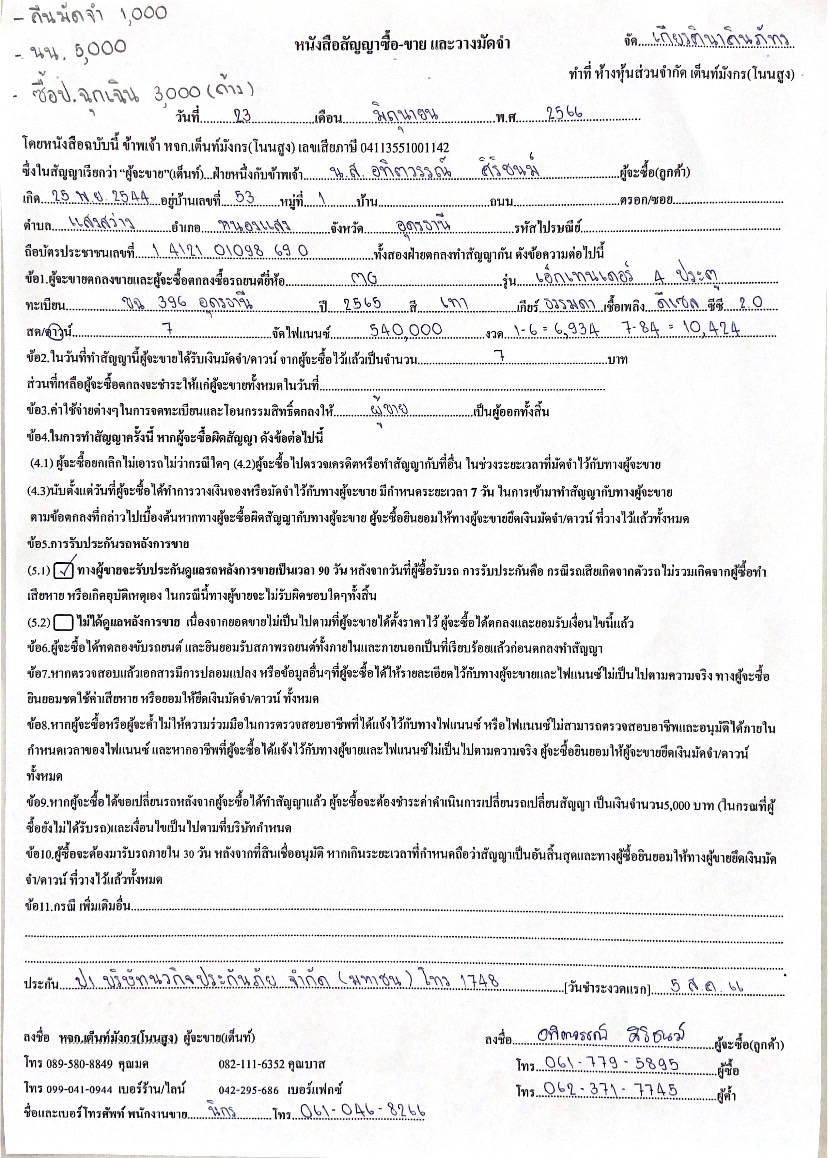 - คืนมัดจำ 1,000
- นน. 5,000
- ซื้อป.ฉุกเฉิน 3,000 (ค้าง)
หนังสือสัญญาซื้อ-ขาย และวางมัดจำ
จัด...เกียรตินาคินภัทร
ทำที่ ห้างหุ้นส่วนจำกัด เต็นท์มังกร(โนนสูง)
วันที่ 23 เดือน มิถุนายน พ.ศ 2566
โดยหนังสือฉบับนี้ ข้าพเจ้า หจก.เต็นท์มังกร(โนนสูง) เลขเสียภาษี 04113551001142
ซึ่งในสัญญาเรียกว่า "ผู้จะขาย"(เต็นท์)...ฝ่ายหนึ่งกับข้าพเจ้า น.ส. อทิตวรรณ์ ศิริชนม์ ผู้จะซื้อ(ลูกค้า)
เกิด 25 พ.ย. 2544 อยู่บ้านเลขที่ 53 หมู่ที่ 1 บ้าน ถนน ตรอก/ซอย
ตำบล แสงสว่าง อำเภอ หนองแสง จังหวัด อุดรธานี รหัสไปรษณีย์
ถือบัตรประชาชนเลขที่ 1 4121 01098 69 0 ทั้งสองฝ่ายตกลงทำสัญญากัน ดังข้อความต่อไปนี้
ข้อ1.ผู้จะขายตกลงขายและผู้จะซื้อตกลงซื้อรถยนต์ยี่ห้อ MG รุ่น เอ็กเทนเดอร์ 4 ประตู
ทะเบียน ขฉ 396 อุดรธานี ปี 2565 สี เทา เกียร์ ธรรมดา เชื้อเพลิง ดีเซล ซีซี 2.0
สด/ดาวน์ 7 จัดไฟแนนซ์ 540,000 งวด 1-6 = 6,934 7-84 = 10,424
ข้อ2.ในวันที่ทำสัญญานี้ผู้จะขายได้รับเงินมัดจำ/ดาวน์ จากผู้จะซื้อไว้แล้วเป็นจำนวน 7 บาท
ส่วนที่เหลือผู้จะซื้อตกลงจะชำระให้แก่ผู้จะขายทั้งหมดในวันที่
ข้อ3.ค่าใช้จ่ายต่างๆในการจดทะเบียนและโอนกรรมสิทธิ์ตกลงให้ ผู้ขาย เป็นผู้ออกทั้งสิ้น
ข้อ4.ในการทำสัญญาครั้งนี้ หากผู้จะซื้อผิดสัญญา ดังข้อต่อไปนี้
(4.1) ผู้จะซื้อยกเลิกไม่เอารถไม่ว่ากรณีใดๆ (4.2)ผู้จะซื้อไปตรวจเครดิตหรือทำสัญญากับที่อื่น ในช่วงระยะเวลาที่มัดจำไว้กับทางผู้จะขาย
(4.3)นับตั้งแต่วันที่ผู้จะซื้อได้ทำการวางเงินจองหรือมัดจำไว้กับทางผู้จะขาย มีกำหนดระยะเวลา 7 วัน ในการเข้ามาทำสัญญากับทางผู้จะขาย
ตามข้อตกลงที่กล่าวไปเบื้องต้นหากทางผู้จะซื้อผิดสัญญากับทางผู้จะขาย ผู้จะซื้อยินยอมให้ทางผู้จะขายยึดเงินมัดจำ/ดาวน์ ที่วางไว้แล้วทั้งหมด
ข้อ5.การรับประกันรถหลังการขาย
(5.1) ✓ ทางผู้ขายจะรับประกันดูแลรถหลังการขายเป็นเวลา 90 วัน หลังจากวันที่ผู้ซื้อรับรถ การรับประกันคือ กรณีรถเสียเกิดจากตัวรถไม่รวมเกิดจากผู้ซื้อทำ
เสียหาย หรือเกิดอุบัติเหตุเอง ในกรณีนี้ทางผู้ขายจะไม่รับผิดชอบใดๆทั้งสิ้น
(5.2) ไม่ได้ดูแลหลังการขาย เนื่องจากยอดขายไม่เป็นไปตามที่ผู้จะขายได้ตั้งราคาไว้ ผู้จะซื้อได้ตกลงและยอมรับเงื่อนไขนี้แล้ว
ข้อ6.ผู้จะซื้อได้ทดลองขับรถยนต์ และยินยอมรับสภาพรถยนต์ทั้งภายในและภายนอกเป็นที่เรียบร้อยแล้วก่อนตกลงทำสัญญา
ข้อ7.หากตรวจสอบแล้วเอกสารมีการปลอมแปลง หรือข้อมูลอื่นๆที่ผู้จะซื้อได้ให้รายละเอียดไว้กับทางผู้จะขายและไฟแนนซ์ไม่เป็นไปตามความจริง ทางผู้จะซื้อ
ยินยอมชดใช้ค่าเสียหาย หรือยอมให้ยึดเงินมัดจำ/ดาวน์ ทั้งหมด
ข้อ8.หากผู้จะซื้อหรือผู้จะค้ำไม่ให้ความร่วมมือในการตรวจสอบอาชีพที่ได้แจ้งไว้กับทางไฟแนนซ์ หรือไฟแนนซ์ไม่สามารถตรวจสอบอาชีพและอนุมัติได้ภายใน
กำหนดเวลาของไฟแนนซ์ และหากอาชีพที่ผู้จะซื้อได้แจ้งไว้กับทางผู้ขายและไฟแนนซ์ไม่เป็นไปตามความจริง ผู้จะซื้อยินยอมให้ผู้จะขายยึดเงินมัดจำ/ดาวน์
ทั้งหมด
ข้อ9.หากผู้จะซื้อได้ขอเปลี่ยนรถหลังจากผู้จะซื้อได้ทำสัญญาแล้ว ผู้จะซื้อจะต้องชำระค่าดำเนินการเปลี่ยนรถเปลี่ยนสัญญา เป็นเงินจำนวน5,000 บาท (ในกรณีที่ผู้
ซื้อยังไม่ได้รับรถ)และเงื่อนไขเป็นไปตามที่บริษัทกำหนด
ข้อ10.ผู้ซื้อจะต้องมารับรถภายใน 30 วัน หลังจากที่สินเชื่ออนุมัติ หากเกินระยะเวลาที่กำหนดถือว่าสัญญาเป็นอันสิ้นสุดและทางผู้ซื้อยินยอมให้ทางผู้ขายยึดเงินมัด
จำ/ดาวน์ ที่วางไว้แล้วทั้งหมด
ข้อ11.กรณี เพิ่มเติมอื่น
ประกัน ป1 บริษัทนวกิจประกันภัย จำกัด (มหาชน) โทร 1748 [วันชำระงวดแรก] 5 ส.ค. 66
ลงชื่อ หจก.เต็นท์มังกร(โนนสูง) ผู้จะขาย(เต็นท์) ลงชื่อ อทิตวรรณ์ ศิริชนม์ ผู้จะซื้อ(ลูกค้า)
โทร 089-580-8849 คุณมด 082-111-6352 คุณบาส โทร 061-779-5895 ผู้ซื้อ
โทร 099-041-0944 เบอร์ร้าน/ไลน์ 042-295-686 เบอร์แฟกซ์ โทร 062-371-7745 ผู้ค้ำ
ชื่อและเบอร์โทรศัพท์ พนักงานขาย นิกร โทร 061-046-8266